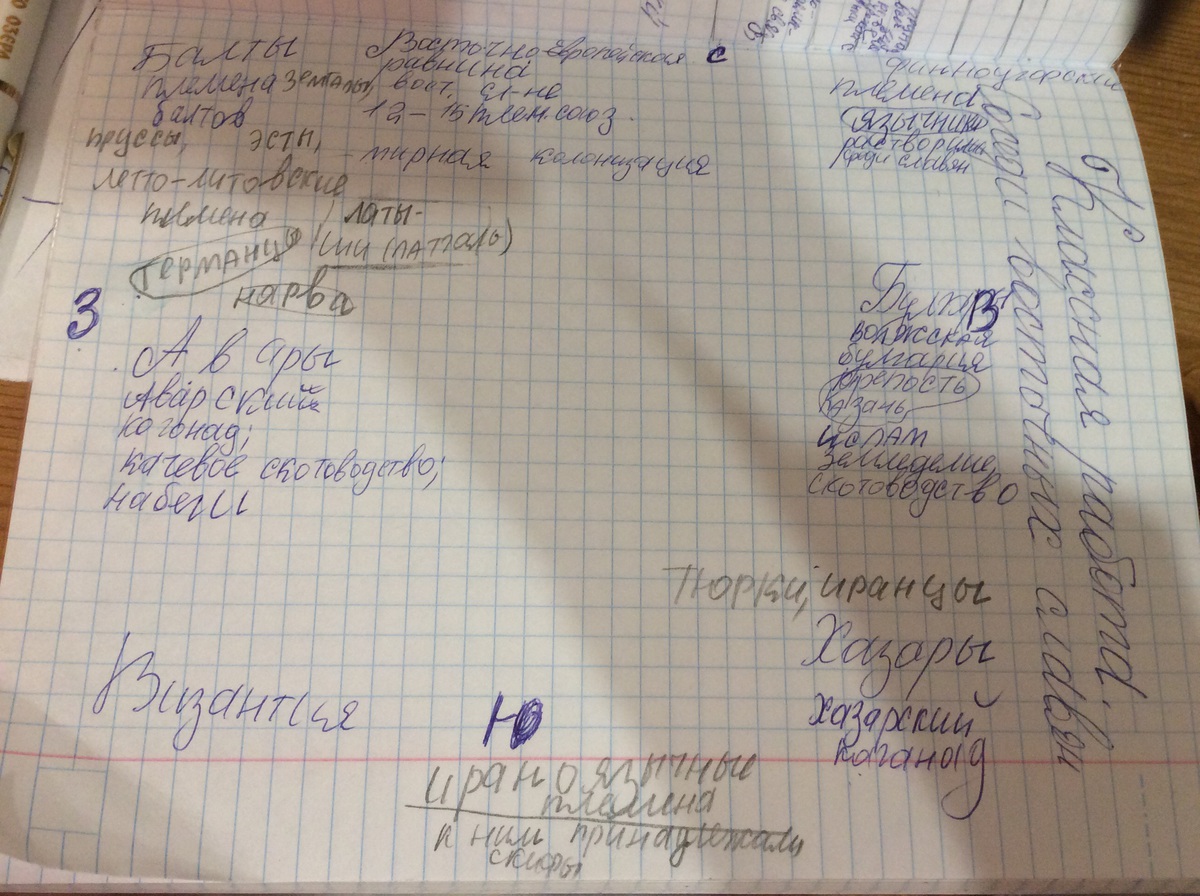 Классная работа.
Соседи восточных славян
Балты
племена земгалы,
балтов
пруссы, эсты,
летто-литовские
племена
латы-
ши (латгалы)
германцы
нарва
Восточно-европейская
равнина
вост. сл-не
12-15 плем. союз.
- мирная колонизация
С
финноугорские
племена
язычники
растворились
среди славян
З
Авары
Аварский
когонад;
качевое скотоводство;
набеги
Булгары
В
волжская
булгария
крепость
казань
ислам
земледелие,
скотоводство
Тюрки, иранцы
Хазары
хазарский
каганад
Византия
Ю
ираноязычные
племена
к ним принадлежали
скифы